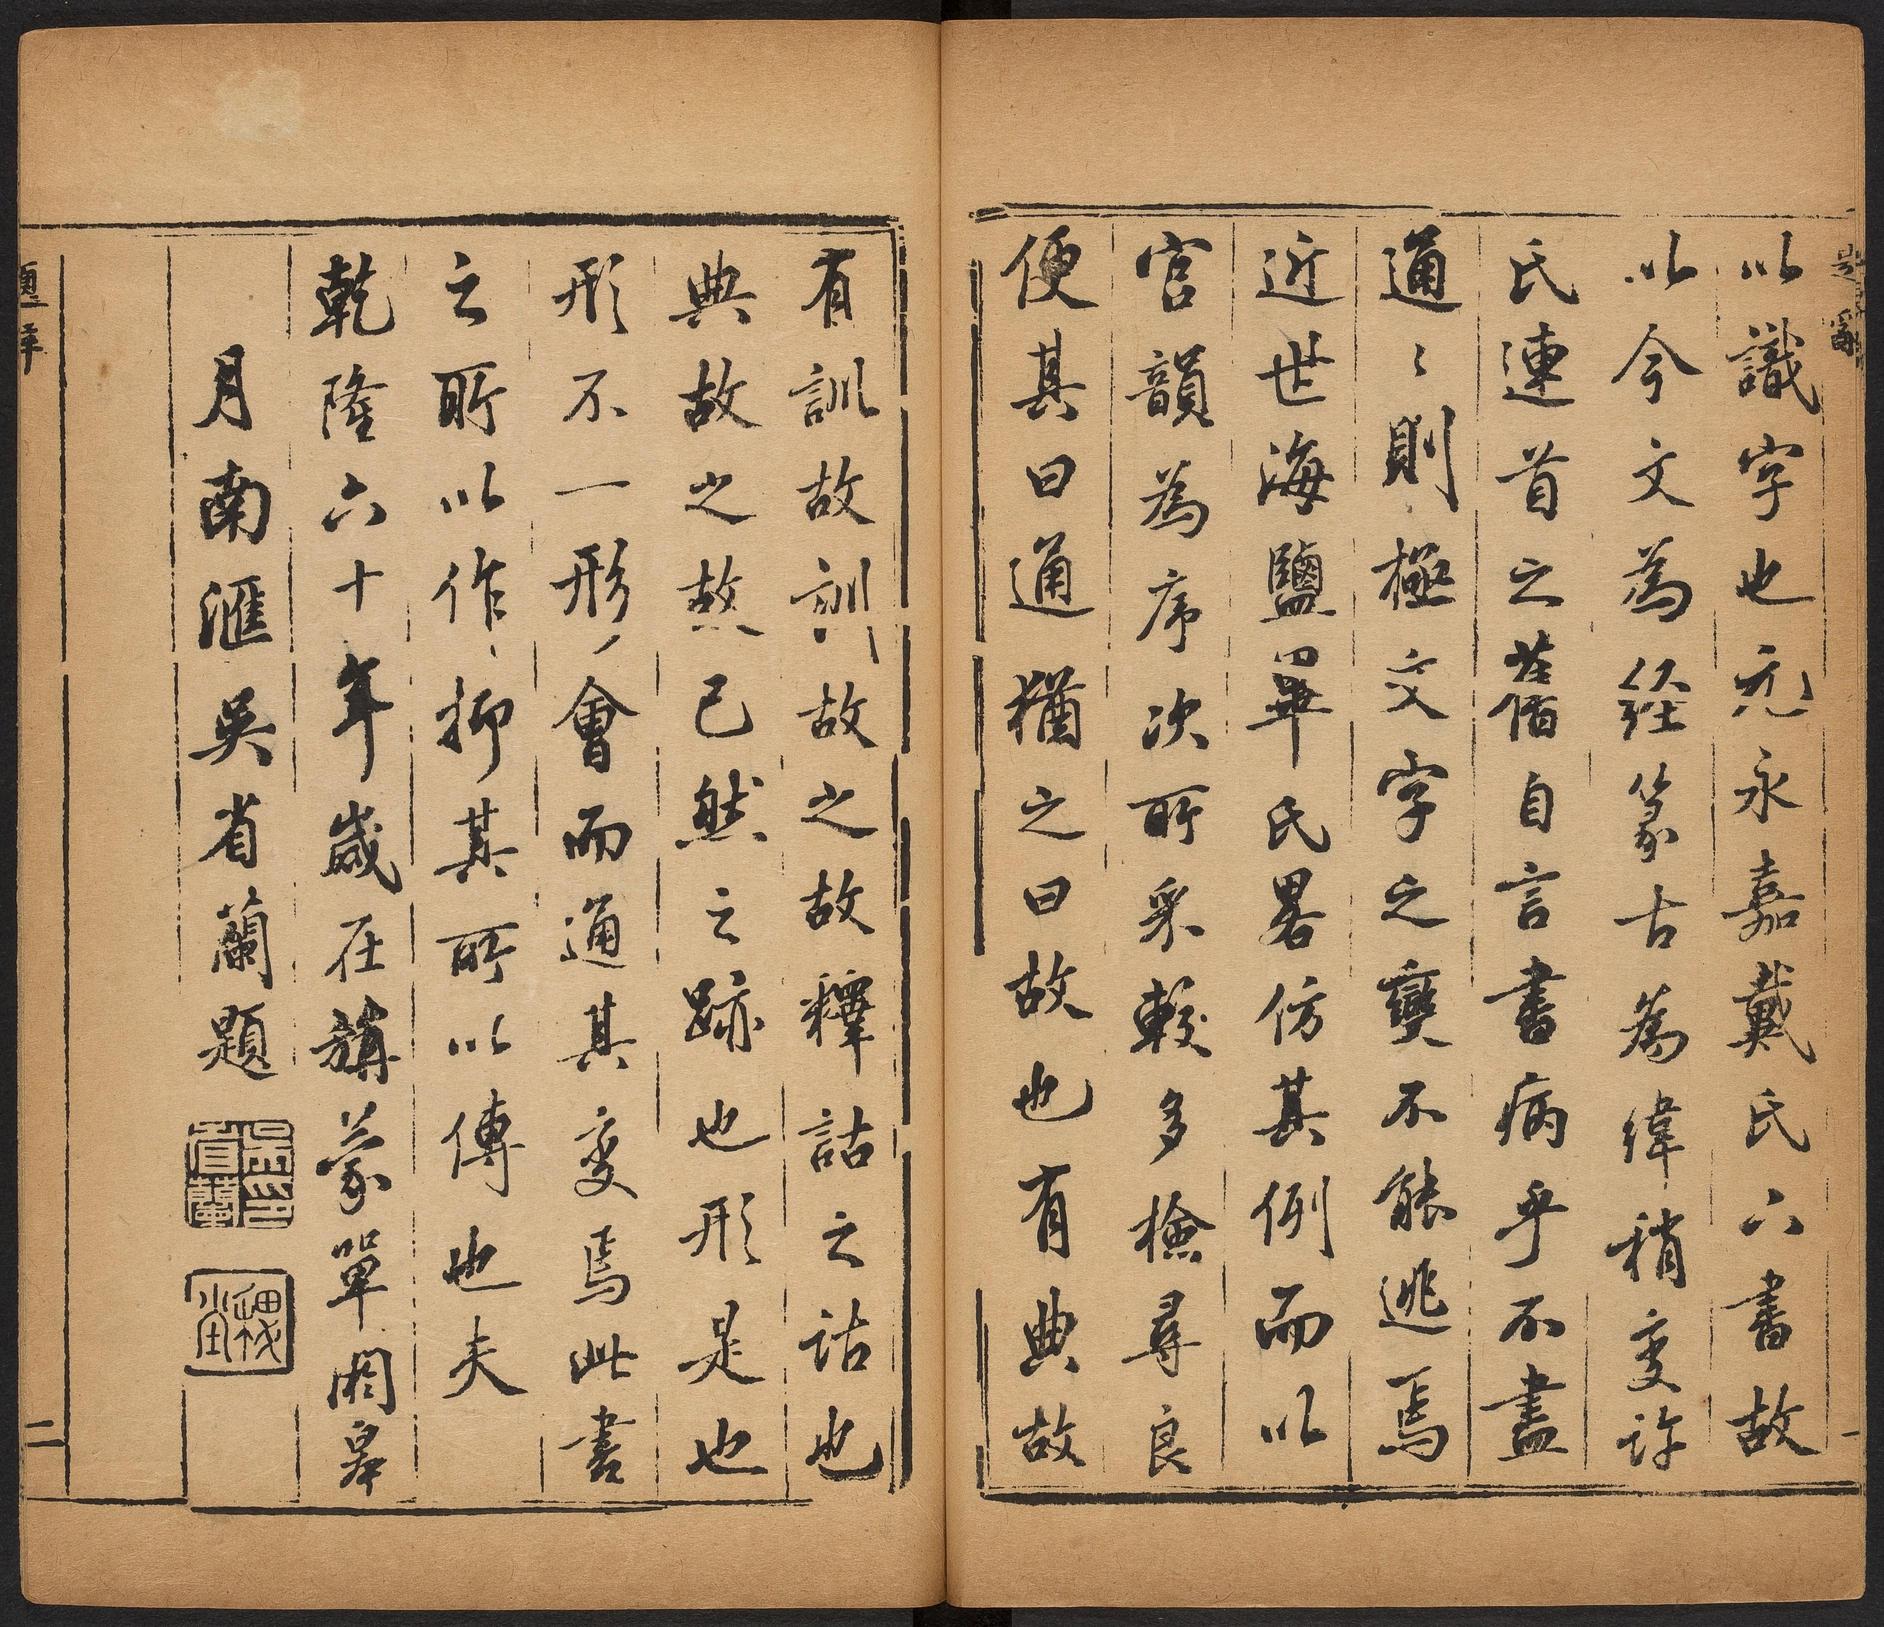 以識字也元永嘉戴氏六書故
以今文為經篆古為緯稍變許
氏連首之舊自言書病乎不盡
通〻則極文字之變不能逃焉
近世海鹽畢氏畧仿其例而以
官韻為序次所采較多檢尋良
便其曰通猶之曰故也有典故
有訓故訓故之故釋詁之詁也
典故之故已然之跡也形是也
形不一形會而通其变焉此書
之所以作抑其所以傳也夫
乾隆六十年歲在旃蒙單閼皋
月南滙吳省蘭題
吳省蘭印
二